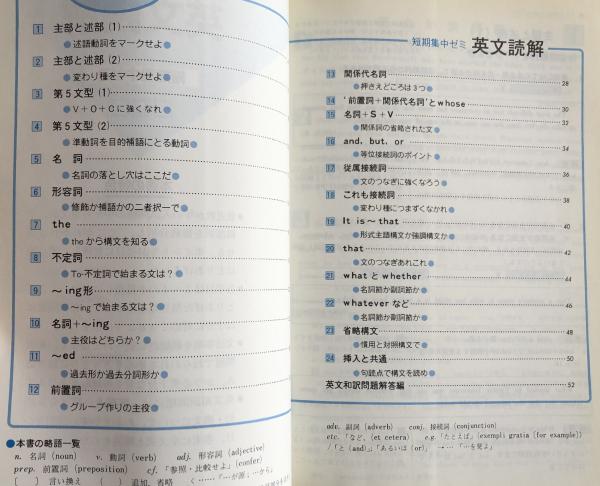 1 主部と述部(1)
●述語動詞をマークせよ●
2 主部と述部(2)
●変わり種をマークせよ●
3 第5文型(1)
●V+O+Cに強くなれ●
4 第5文型(2)
●準動詞を目的補語にとる動詞●
5 名 詞
●名詞の落とし穴はここだ●
6 形容詞
●修飾か補語かの二者択一で●
7 the
●theから構文を知る●
8 不定詞
●To-不定詞で始まる文は?●
9 ~ing形
●~ingで始まる文は?●
10 名詞+~ing
●主役はどちらか?●
11 ~ed
●過去形か過去分詞形か●
12 前置詞
●グループ作りの主役●
●本書の略語一覧
n. 名詞 (noun) v. 動詞 (verb) adj. 形容詞 (adjective)
prep. 前置詞 (preposition) cf.「参照・比較せよ」(confer)
[ ] 言い換え ( ) 追加,省略 く……「…が源;…から」
短期集中ゼミ 英文読解
13 関係代名詞 28
●押さえどころは3つ●
14 '前置詞+関係代名詞'とwhose 30
15 名詞+S+V 32
●関係詞の省略された文●
16 and,but,or 34
●等位接続詞のポイント●
17 従属接続詞 36
●文のつなぎに強くなろう●
18 これも接続詞 38
●変わり種につまずくなかれ●
19 It is~that 40
●形式主語構文か強調構文か●
20 that 42
●文のつなぎあれこれ●
21 whatとwhether 44
●名詞節か副詞節か●
22 whateverなど 46
●名詞節か副詞節か●
23 省略構文 48
●慣用と対照構文で●
24 挿入と共通 50
●句読点で構文を読め●
英文和訳問題解答編 52
adv. 副詞 (adverb) conj. 接続詞 (conjunction)
etc.「など」(et cetera) e.g.「たとえば」(exempli gratia [for example])
/「と (and)」;「あるいは (or)」 →…「…を見よ」